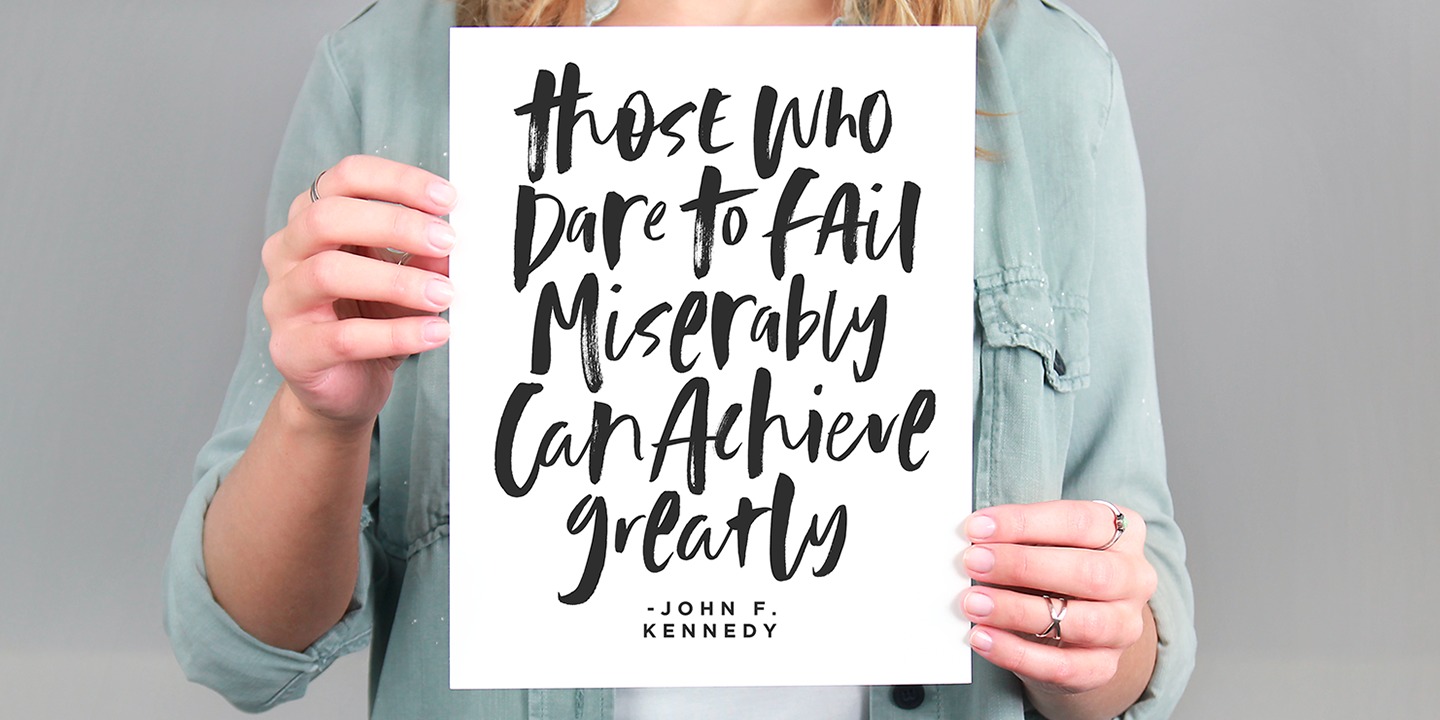 those who
Dare to fAil
Miserably
Can Achieve
greatly
-JOHN F.
KENNEDY